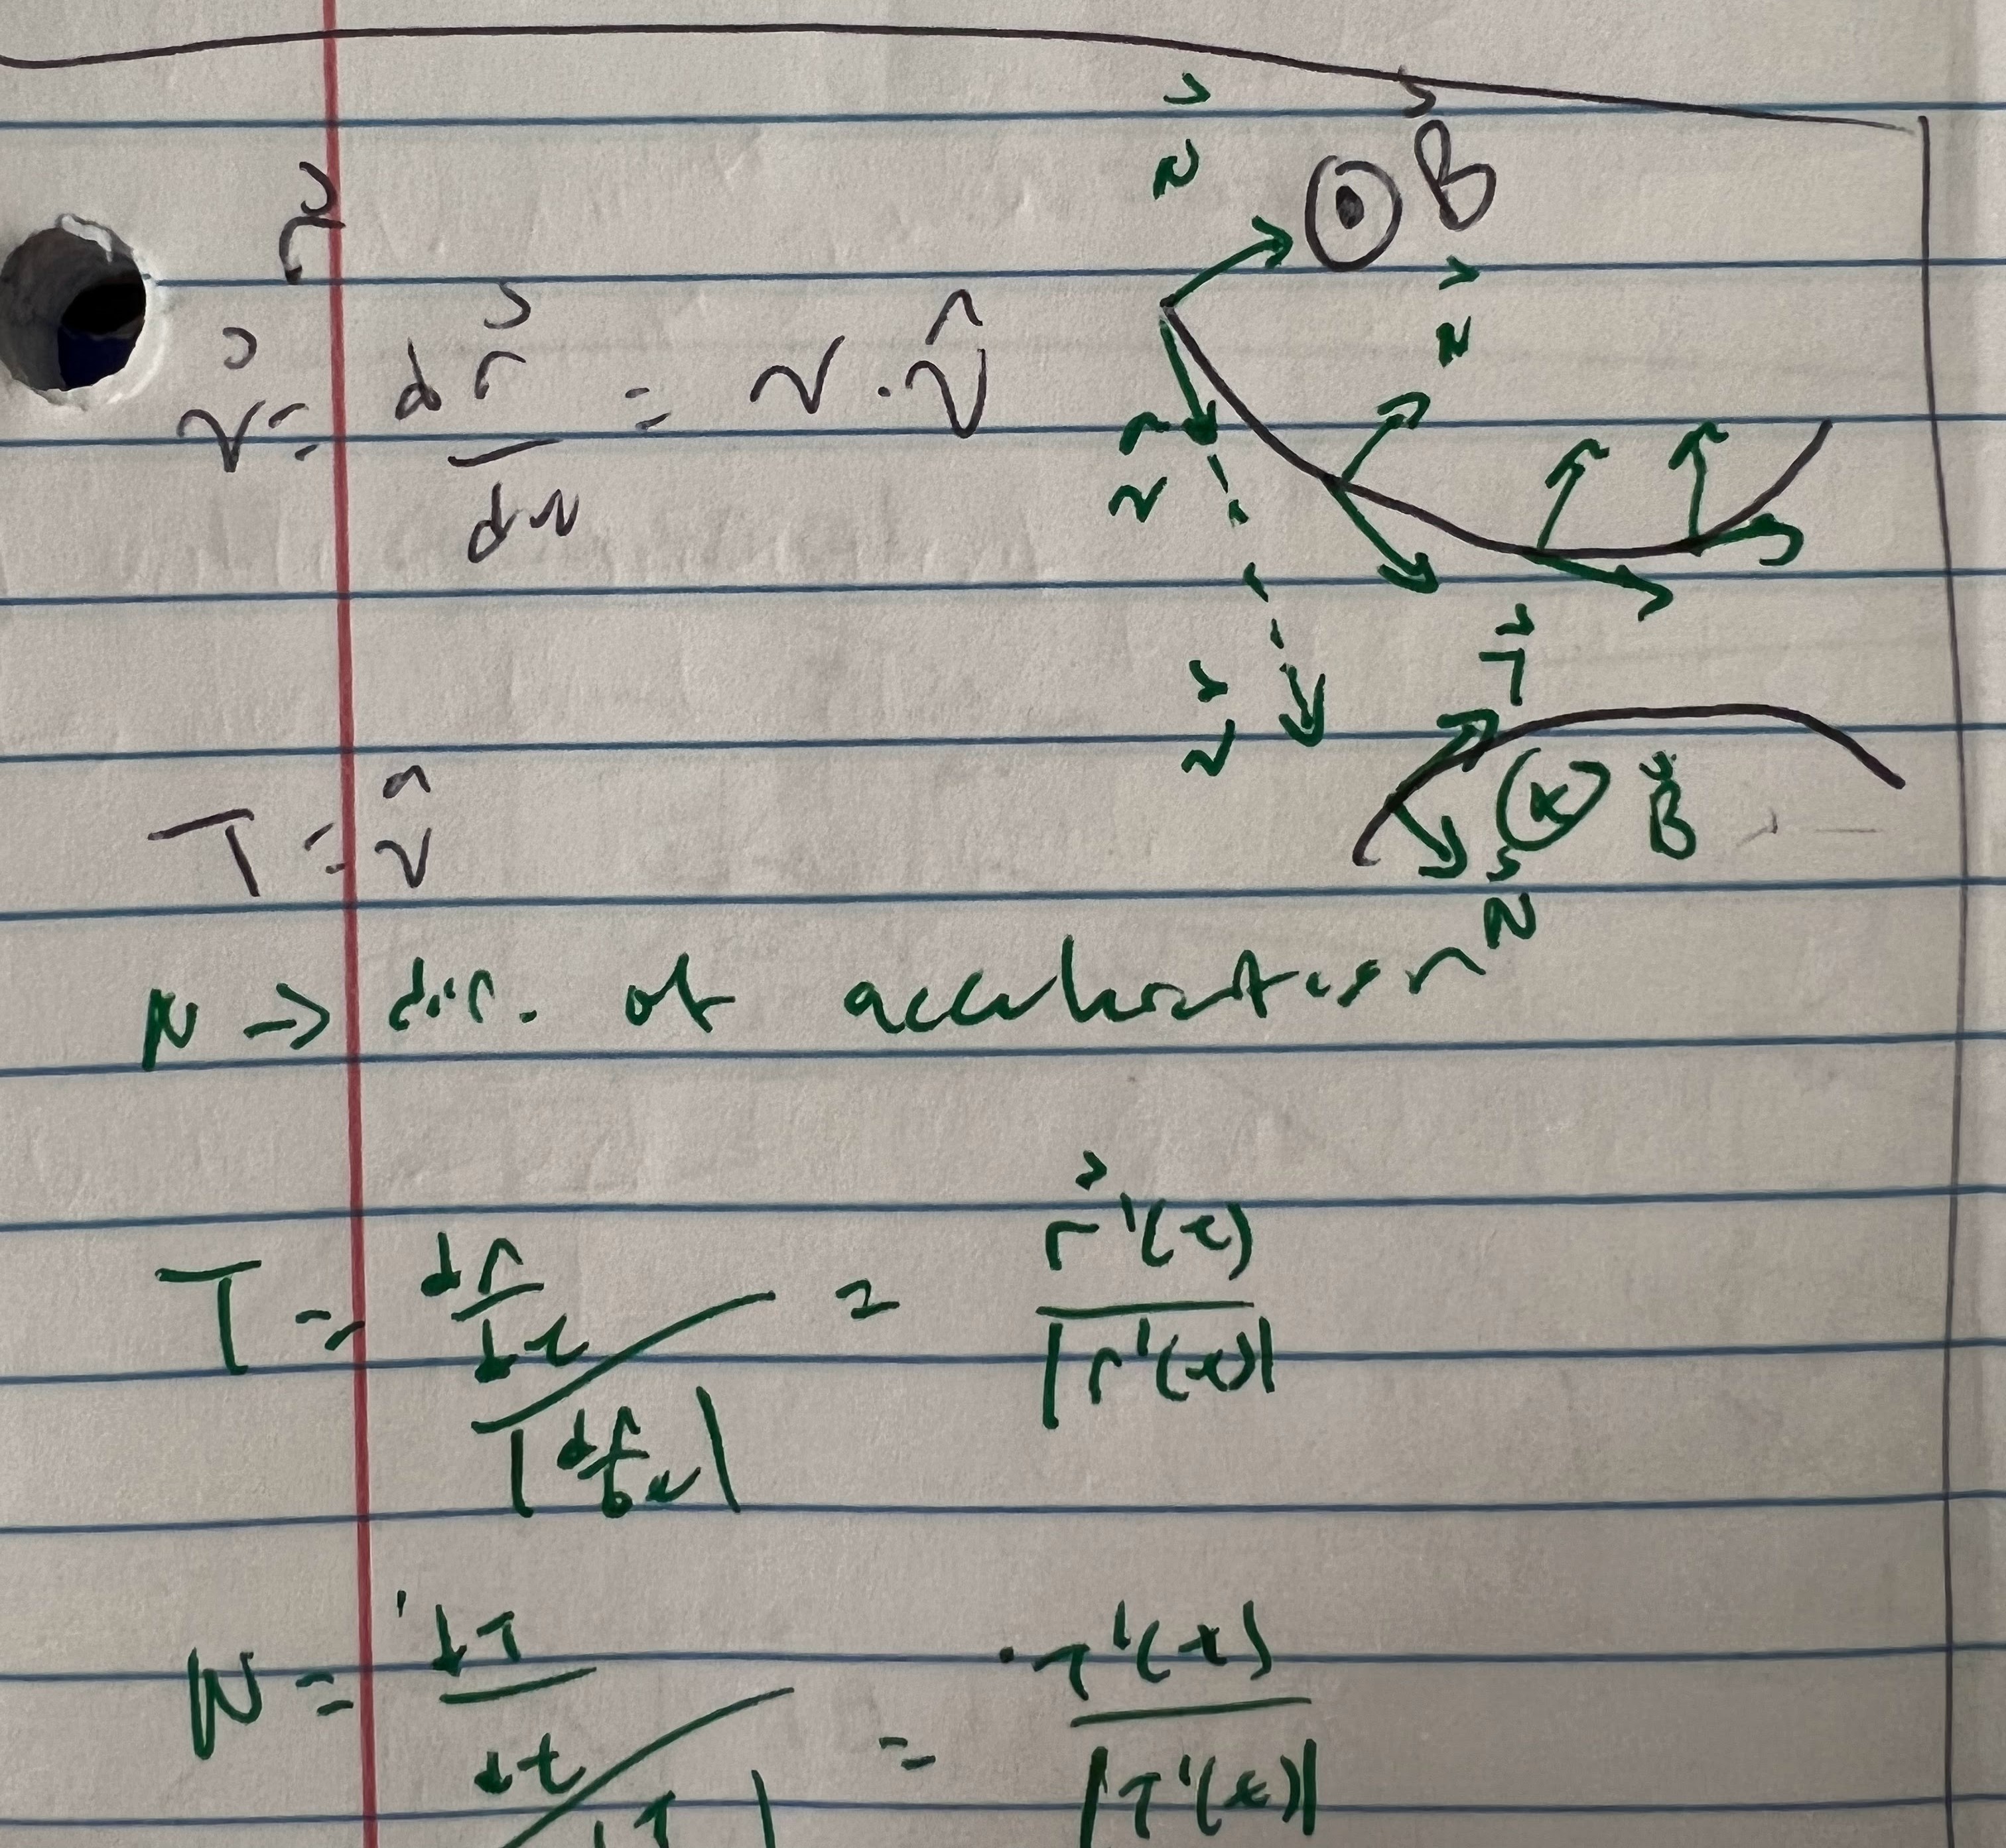 r⃗
v⃗ = dr⃗/dt = v · v̂
N⃗
⊙ B⃗
N⃗
v⃗
T⃗
⊗ B⃗
N⃗
T = v̂
N → dir. of acceleration
T = (dr/dt)/|dr/dt| = r⃗'(t)/|r'(t)|
N = (dT/dt)/ = T'(t)/|T'(t)|